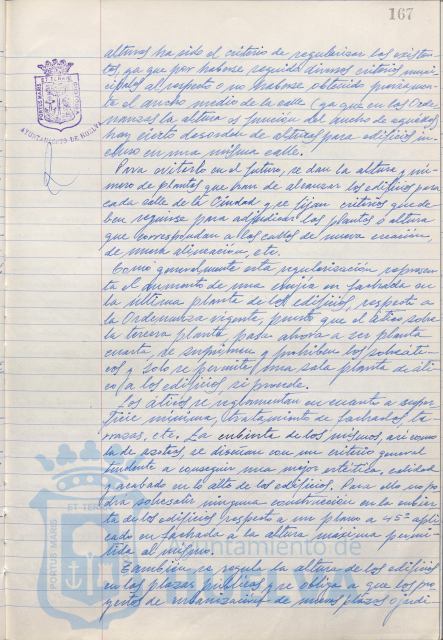 167
ET TERRAE
PORTUS MARIS
AYUNTAMIENTO DE HUELVA
alturas ha sido el criterio de regularizar las existen-
tes, ya que por haberse seguido diversos criterios muni-
cipales al respecto o no haberse obtenido previamen-
te el ancho medio de la calle (ya que en las Orde-
nanzas la altura es función del ancho de aquellas)
hay cierto desorden de alturas para edificios in-
cluso en una misma calle.
Para evitarlo en el futuro, se dan la altura y nú-
mero de plantas que han de alcanzar los edificios para
cada calle de la Ciudad y se fijan criterios que de-
ben seguirse para adjudicar las plantas o altura
que correspondan a las calles de nueva creación,
de nueva alineación, etc.
Como generalmente esta regularización represen-
ta el aumento de una crujía en fachada en
la última planta de los edificios, respecto a
la Ordenanza vigente, puesto que el ático sobre
la tercera planta pasa ahora a ser planta
cuarta, se suprimen y prohíben los sobreáti-
cos y sólo se permite una sola planta de áti-
co a los edificios si procede.
Los áticos se reglamentan en cuanto a super-
ficie mínima, tratamiento de fachadas, te-
rrazas, etc. La cubierta de los mismos, así como
la de azoteas, se diseñan con un criterio general
tendente a conseguir una mejor estética, calidad
y acabado en lo alto de los edificios. Para ello no po-
drá sobresalir ninguna construcción en la cubier-
ta de los edificios, respecto a un plano a 45º apli-
cado en fachada a la altura máxima permi-
tida al mismo.
También se regula la altura de los edificios
en las plazas públicas y se obliga a que los pro-
yectos de urbanización de nuevas plazas o jardi
ET TERRAE
PORTUS MARIS
Ayuntamiento de
HUELVA